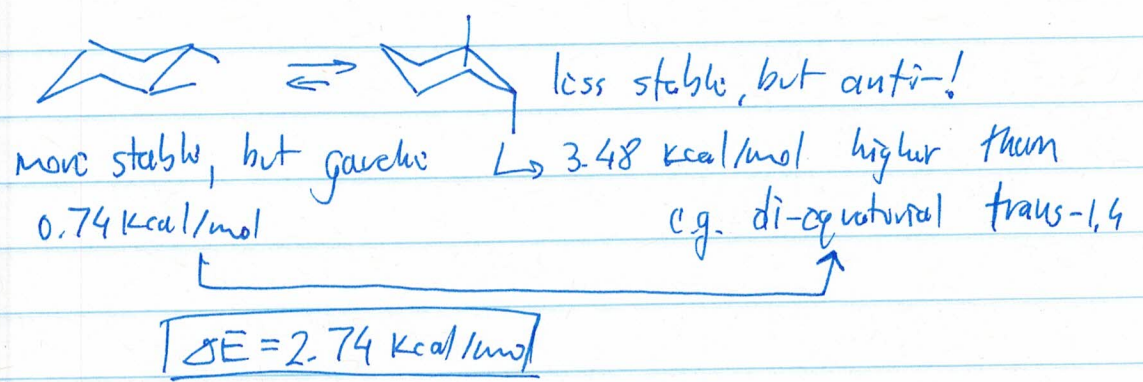 less stable, but anti-!
more stable, but gauche ↳ 3.48 kcal/mol higher than
0.74 kcal/mol e.g. di-equatorial trans-1,4
ΔE = 2.74 kcal/mol